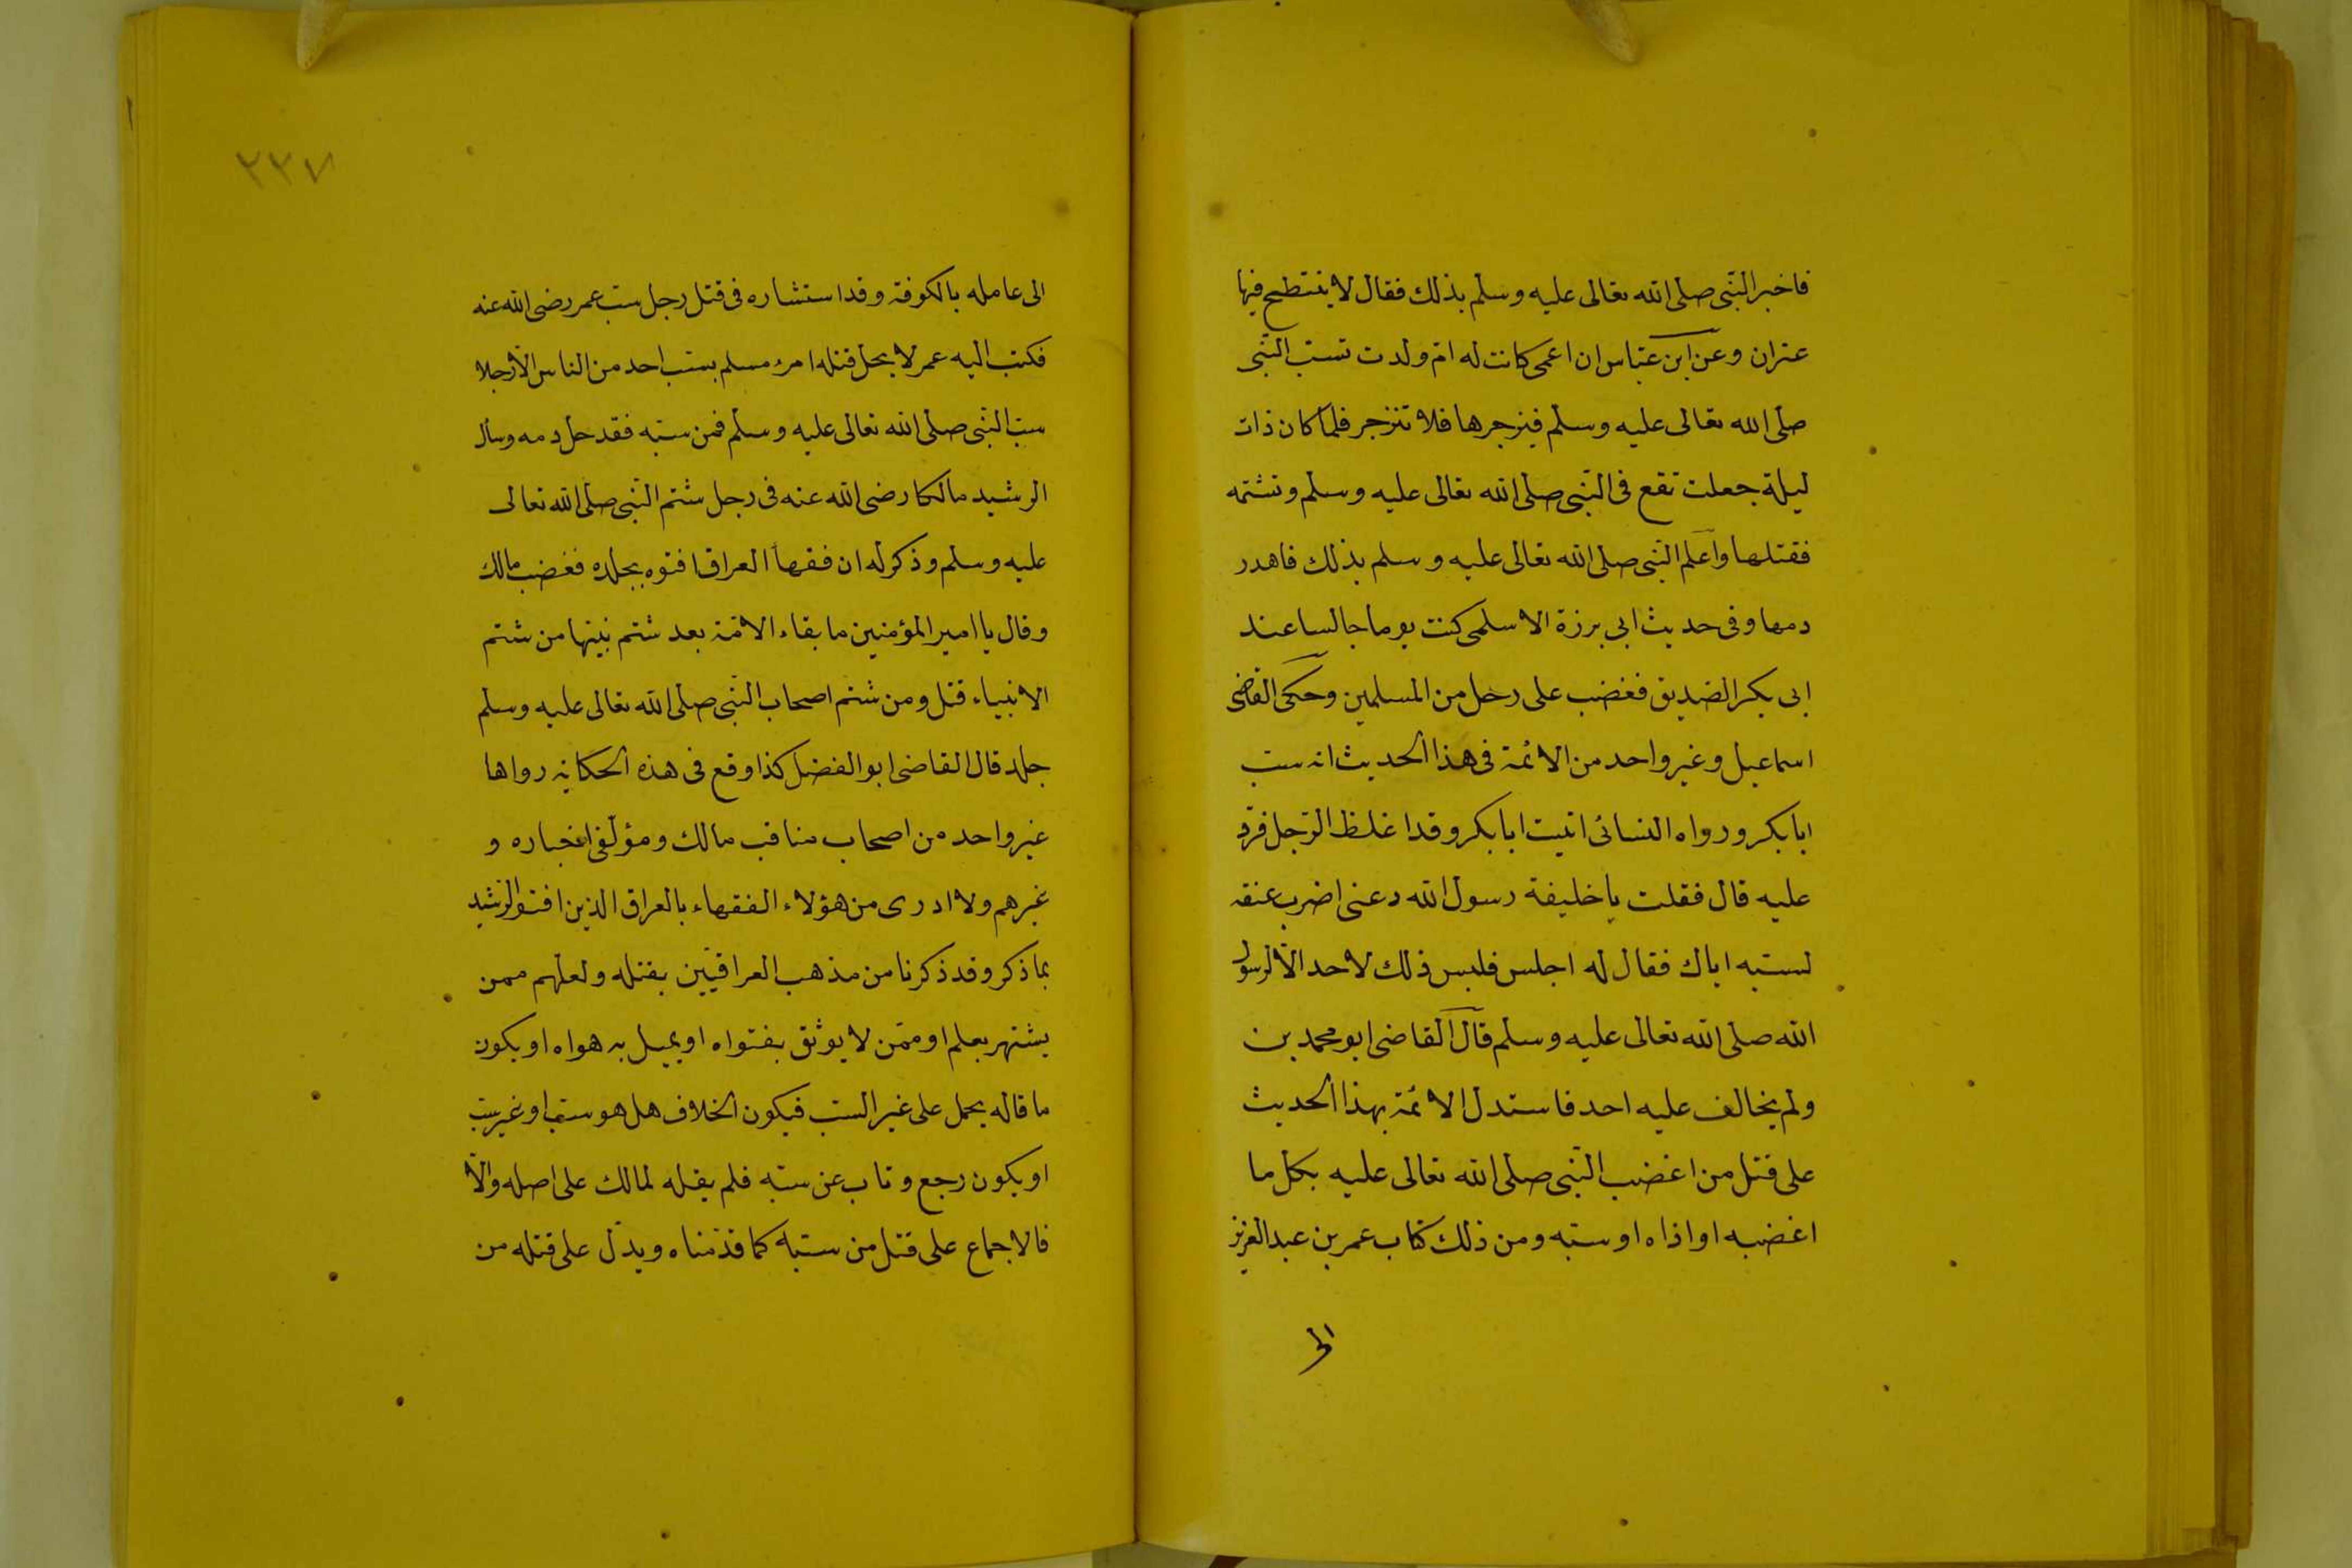 فاخبر النبى صلى الله تعالى عليه وسلم بذلك فقال لا ينتطح فيها
عنزان وعن ابن عباس ان اعمى كانت له ام ولدت تسب النبى
صلى الله تعالى عليه وسلم فيزجرها فلا تنزجر فلما كان ذات
ليلة جعلت تقع فى النبى صلى الله تعالى عليه وسلم وتشتمه
فقتلها واعلم النبى صلى الله تعالى عليه وسلم بذلك فاهدر
دمها وفى حديث ابى برزة الاسلمى كنت يوما جالسا عند
ابى بكر الصديق فغضب على رجل من المسلمين وحكى القاضى
اسماعيل وغير واحد من الائمة فى هذا الحديث انه سب
ابا بكر ورواه النسائى اتيت ابا بكر وقد اغلظ الرجل فرد
عليه قال فقلت يا خليفة رسول الله دعنى اضرب عنقه
لسبه اياك فقال له اجلس فليس ذلك لاحد الا لرسول
الله صلى الله تعالى عليه وسلم قال القاضى ابو محمد بن
ولم يخالف عليه احد فاستدل الائمة بهذا الحديث
على قتل من اغضب النبى صلى الله تعالى عليه بكل ما
اغضبه او اذاه او سبه ومن ذلك كتاب عمر بن عبد العزيز
الى
٢٢٧
الى عامله بالكوفة وقد استشاره فى قتل رجل سب عمر رضى الله عنه
فكتب اليه عمر لا يحل قتله امرء مسلم بسب احد من الناس الا رجلا
سب النبى صلى الله تعالى عليه وسلم فمن سبه فقد حل دمه وسأل
الرشيد مالكا رضى الله عنه فى رجل شتم النبى صلى الله تعالى
عليه وسلم وذكر له ان فقهاء العراق افتوه بجلده فغضب مالك
وقال يا امير المؤمنين ما بقاء الامة بعد شتم نبيها من شتم
الانبياء قتل ومن شتم اصحاب النبى صلى الله تعالى عليه وسلم
جلد قال القاضى ابو الفضل كذا وقع فى هذه الحكاية رواها
غير واحد من اصحاب مناقب مالك ومؤلفى اخباره و
غيرهم ولا ادرى من هؤلاء الفقهاء بالعراق الذين افتوا الرشيد
بما ذكر وقد ذكرنا من مذهب العراقيين بقتله ولعلهم ممن
يشتهر بعلم او ممن لا يوثق بفتواه او يميل به هواه او يكون
ما قاله يحمل على غير السب فيكون الخلاف هل هو سب او غير سب
او يكون رجع وتاب عن سبه فلم يقله لمالك على اصله والا
فالاجماع على قتل من سبه كما قدمناه ويدل على قتله من